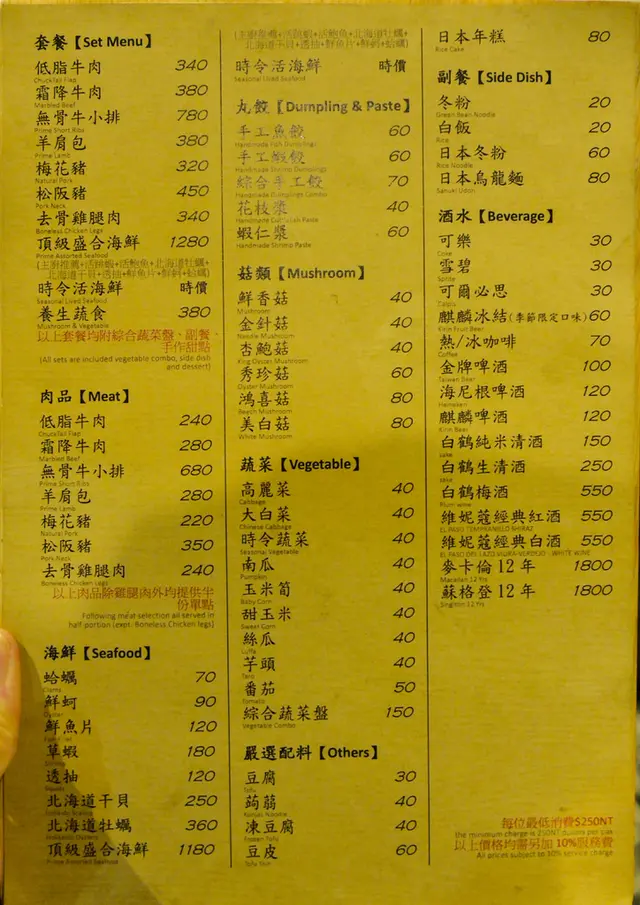 套餐【Set Menu】
低脂牛肉 340
ChuckTail Flap
霜降牛肉 380
Marbled Beef
無骨牛小排 780
Prime Short Ribs
羊肩包 380
Prime Lamb
梅花豬 320
Natural Pork
松阪豬 450
Pork Neck
去骨雞腿肉 340
Boneless Chicken Legs
頂級盛合海鮮 1280
Prime Assorted Seafood
(主廚推薦+活跳蝦+活鮑魚+北海道牡蠣+
北海道干貝+透抽+鮮魚片+鮮蚵+蛤蠣)
時令活海鮮 時價
Seasonal Lived Seafood
養生蔬食 380
Mushroom & Vegetable
以上套餐均附綜合蔬菜盤、副餐、
手作甜點
(All sets are included vegetable combo, side dish
and dessert)
肉品【Meat】
低脂牛肉 240
ChuckTail Flap
霜降牛肉 280
Marbled Beef
無骨牛小排 680
Prime Short Ribs
羊肩包 280
Prime Lamb
梅花豬 220
Natural Pork
松阪豬 350
Pork Neck
去骨雞腿肉 240
Boneless Chicken Legs
以上肉品除雞腿肉外均提供半
份單點
Following meat selection all served in
half portion (exet. Boneless Chicken legs)
海鮮【Seafood】
蛤蠣 70
Clams
鮮蚵 90
Oyster
鮮魚片 120
草蝦 180
透抽 120
北海道干貝 250
北海道牡蠣 360
頂級盛合海鮮 1180
Prime Assorted Seafood
(主廚推薦+活跳蝦+活鮑魚+北海道牡蠣+
北海道干貝+透抽+鮮魚片+鮮蚵+蛤蠣)
時令活海鮮 時價
Seasonal Lived Seafood
丸餃【Dumpling & Paste】
手工魚餃 60
Handmade Fish Dumplings
手工蝦餃 60
Handmade Shrimp Dumplings
綜合手工餃 70
Handmade Dumplings Combo
花枝漿 40
Handmade Cuttlefish Paste
蝦仁漿 60
Handmade Shrimp Paste
菇類【Mushroom】
鮮香菇 40
Mushroom
金針菇 40
Needle Mushroom
杏鮑菇 40
King Oyster Mushroom
秀珍菇 60
Oyster Mushroom
鴻喜菇 80
Beech Mushroom
美白菇 80
White Mushroom
蔬菜【Vegetable】
高麗菜 40
Cabbage
大白菜 40
Chinese Cabbage
時令蔬菜 40
Seasonal Vegetable
南瓜 40
Pumpkin
玉米筍 40
Baby Corn
甜玉米 40
Sweet Corn
絲瓜 40
Luffa
芋頭 40
Taro
番茄 50
Tomato
綜合蔬菜盤 150
Vegetable Combo
嚴選配料【Others】
豆腐 30
Tofu
蒟蒻 40
Konjac Noodle
凍豆腐 40
Frozen Tofu
豆皮 60
Tofu Skin
日本年糕 80
Rice Cake
副餐【Side Dish】
冬粉 20
Green Bean Noodle
白飯 20
Rice
日本冬粉 60
Rice Noodle
日本烏龍麵 80
Sanuki Udon
酒水【Beverage】
可樂 30
Coke
雪碧 30
Sprite
可爾必思 30
Calpis
麒麟冰結(季節限定口味) 60
Kirin Fruit Beer
熱/冰咖啡 70
Coffee
金牌啤酒 100
Taiwan Beer
海尼根啤酒 120
Heineken
麒麟啤酒 120
Kirin Beer
白鶴純米清酒 150
sake
白鶴生清酒 250
sake
白鶴梅酒 550
Plum wine
維妮蔻經典紅酒 550
EL PASO TEMPRANILLO SHIRAZ
維妮蔻經典白酒 550
EL PASO DEL LAZO VIURA-VERDEJO - WHITE WINE
麥卡倫 12 年 1800
Macallan 12 Yrs
蘇格登 12 年 1800
Singleton 12 Yrs
每位最低消費$250NT
the minimum charge is 250NT dollars per gas
以上價格均需另加 10%服務費
All prices subject to 10% service charge